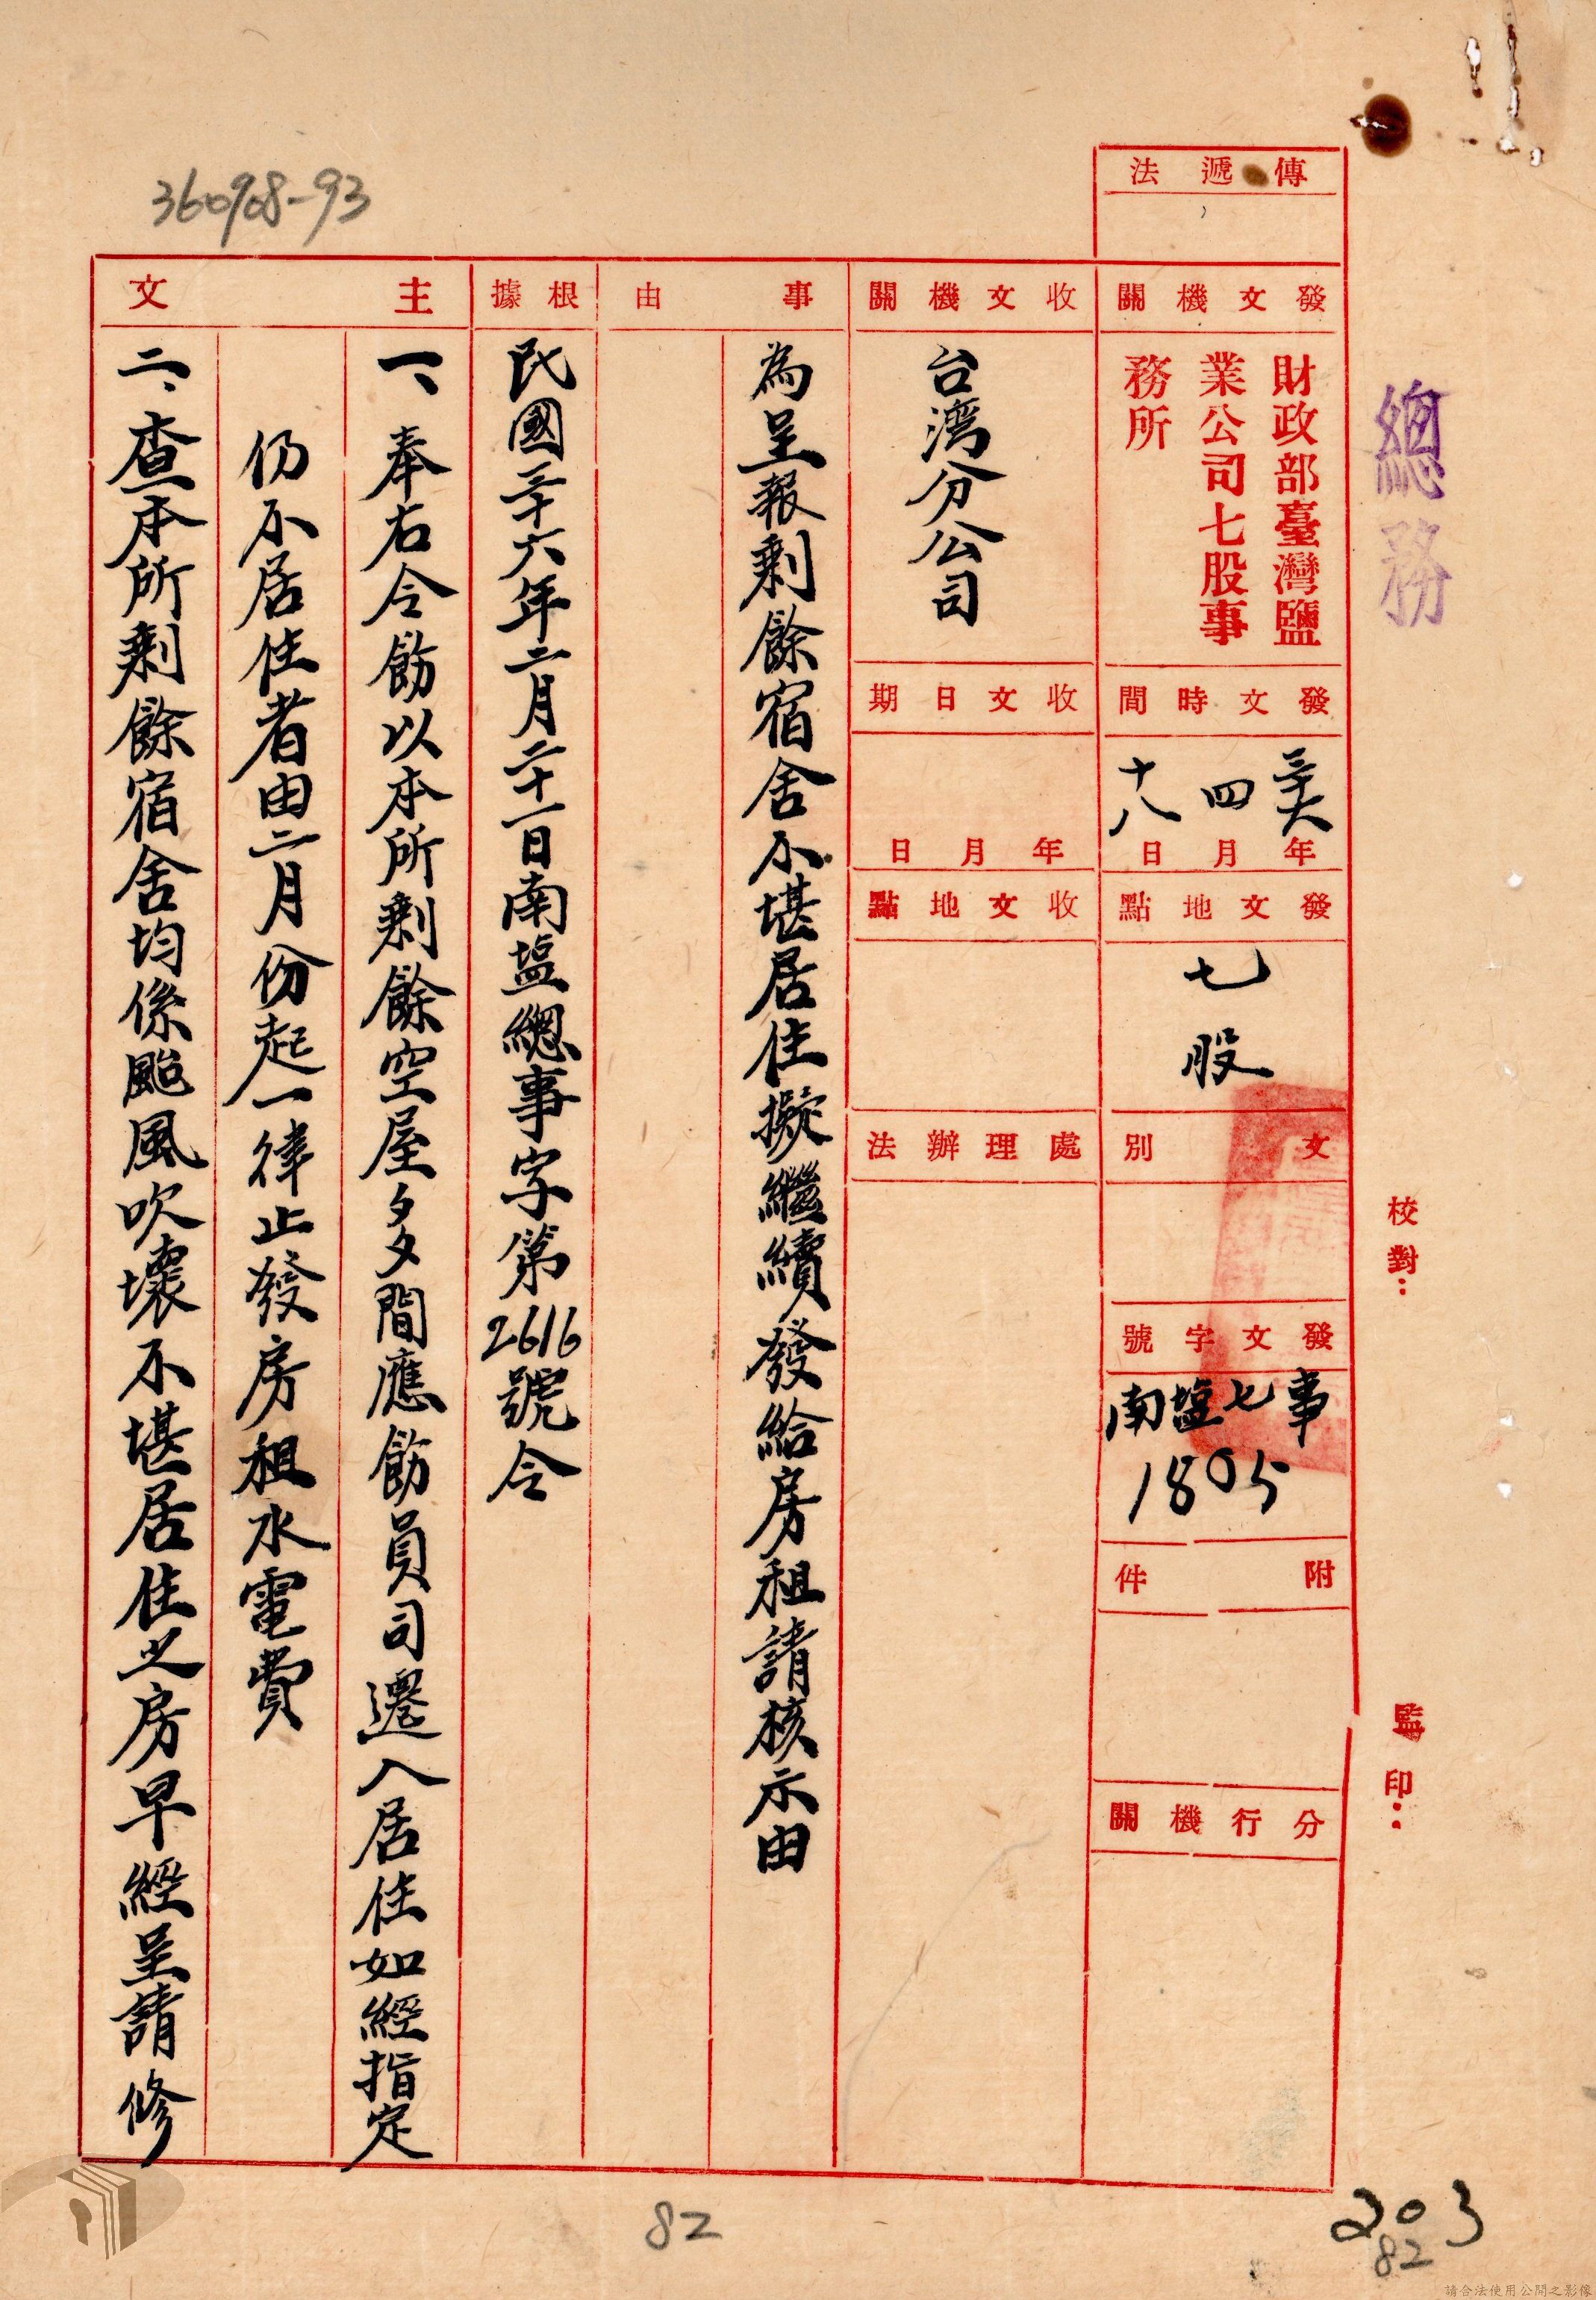 36098-93
總務
校對：
監印：
傳遞法
發文機關
財政部臺灣鹽
業公司七股事
務所
發文時間
三六年四月十八日
發文地點
七股
文別
發文字號
南塩七事
1805
附件
分行機關
收文機關
台湾分公司
收文日期
年月日
收文地點
處理辦法
事由
為呈報剩餘宿舍不堪居住擬繼續發給房租請核示由
根據
民國三十六年二月二十一日南塩總事字第2616號令
主文
一、奉右令飭以本所剩餘空屋多間應飭員司遷入居住如經指定
仍不居住者由二月份起一律止發房租水電費
二、查本所剩餘宿舍均係颱風吹壞不堪居住之房早經呈請修
82
203
82
請合法使用公開之影像